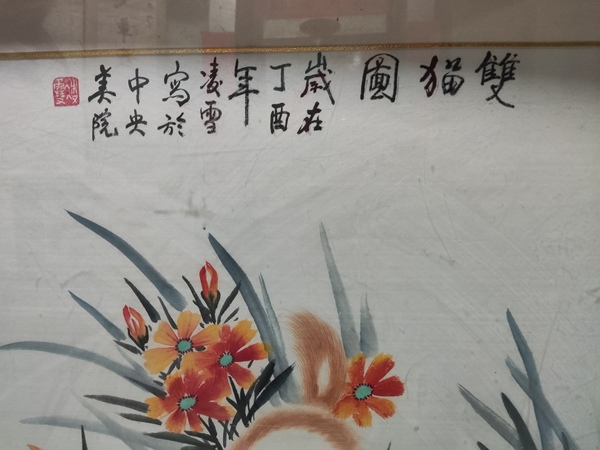 雙猫圖
歲在
丁酉
年
凌雪
寫於
中央
美院